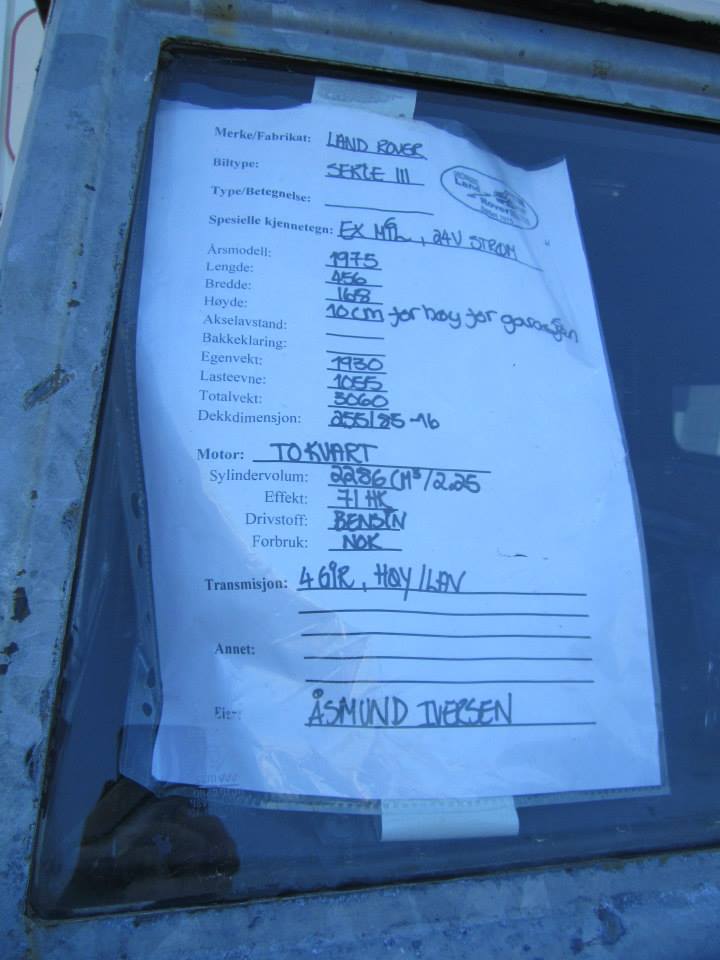 Merke/Fabrikat: LAND ROVER
Biltype: SERIE III
Type/Betegnelse:
Land
Rover
Spesielle kjennetegn: EX MIL, 24V STRØM
Årsmodell: 1975
Lengde: 456
Bredde: 168
Høyde: 10cm for høy for garasjen
Akselavstand:
Bakkeklaring:
Egenvekt: 1930
Lasteevne: 1055
Totalvekt: 3060
Dekkdimensjon: 255/85-16
Motor: TOKVART
Sylindervolum: 2286 CM³/2.25
Effekt: 71 HK
Drivstoff: BENSIN
Forbruk: NOK
Transmisjon: 4 GIR, HØY/LAV
Annet:
Eier: ÅSMUND IVERSEN